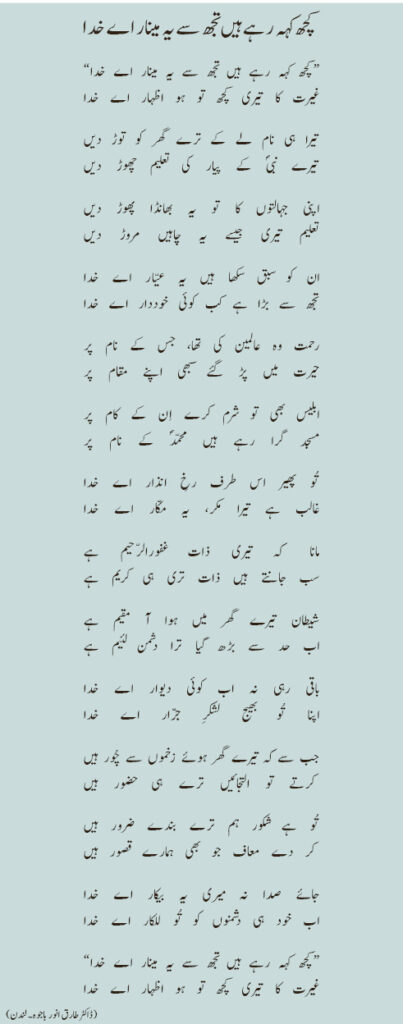 کچھ کہہ رہے ہیں تجھ سے یہ مینار اے خدا
”کچھ کہہ رہے ہیں تجھ سے یہ مینار اے خدا“
غیرت کا تیری کچھ تو ہو اظہار اے خدا
تیرا ہی نام لے کے ترے گھر کو توڑ دیں
تیرے نبیؐ کے پیار کی تعلیم چھوڑ دیں
اپنی جہالتوں کا تو یہ بھانڈا پھوڑ دیں
تعلیم تیری جیسے یہ چاہیں مروڑ دیں
ان کو سبق سکھا ہیں یہ عیّار اے خدا
تجھ سے بڑا ہے کب کوئی خوددار اے خدا
رحمت وہ عالمین کی تھا، جس کے نام پر
حیرت میں پڑ گئے سبھی اپنے مقام پر
ابلیس بھی تو شرم کرے اِن کے کام پر
مسجد گرا رہے ہیں محمدؐ کے نام پر
تُو پھیر اس طرف رخِ انذار اے خدا
غالب ہے تیرا مکر، یہ مکّار اے خدا
مانا کہ تیری ذات غفورالرّحیم ہے
سب جانتے ہیں ذات تری ہی کریم ہے
شیطان تیرے گھر میں ہوا آ مقیم ہے
اب حد سے بڑھ گیا ترا دشمن لئیم ہے
باقی رہی نہ اب کوئی دیوار اے خدا
اپنا تُو بھیج لشکرِ جرّار اے خدا
جب سے کہ تیرے گھر ہوئے زخموں سے چُور ہیں
کرتے تو التجائیں ترے ہی حضور ہیں
تُو ہے شکور ہم ترے بندے ضرور ہیں
کر دے معاف جو بھی ہمارے قصور ہیں
جائے صدا نہ میری یہ بیکار اے خدا
اب خود ہی دشمنوں کو تُو للکار اے خدا
”کچھ کہہ رہے ہیں تجھ سے یہ مینار اے خدا“
غیرت کا تیری کچھ تو ہو اظہار اے خدا
(ڈاکٹر طارق انور باجوہ۔ لندن)